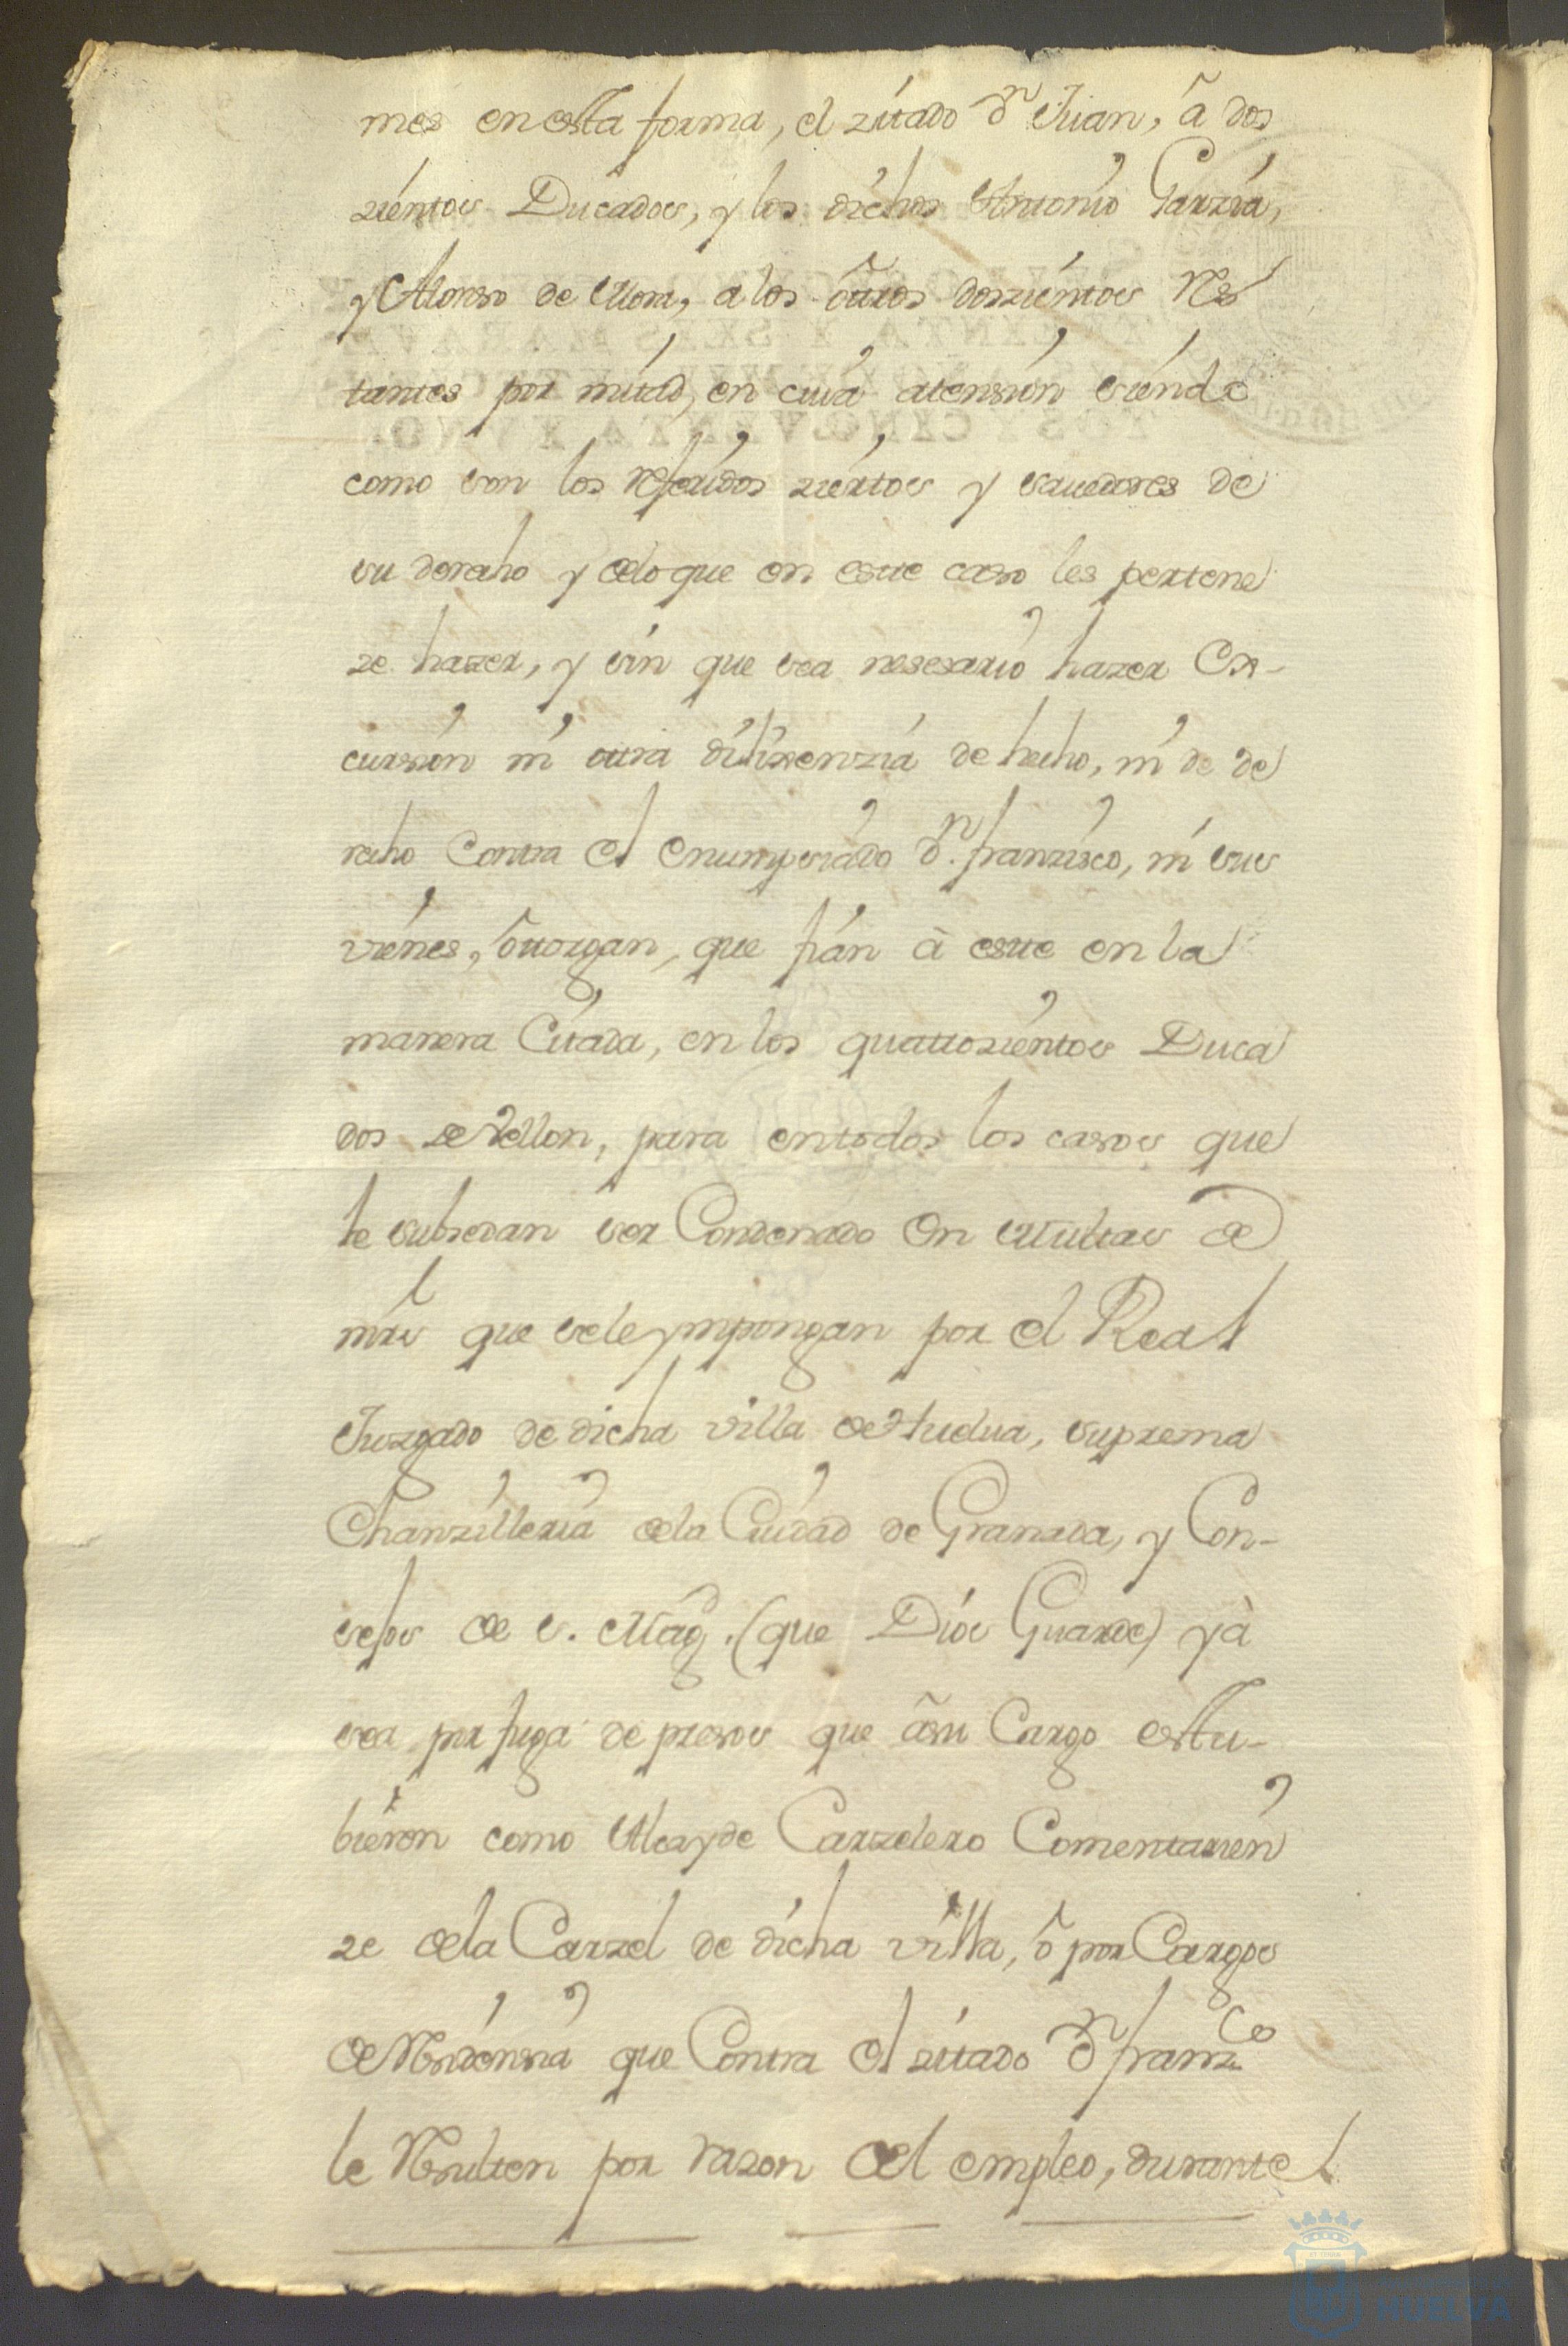 mos en esta forma, el zitado Dn Juan, â dos
zientos Ducados, y los dichos Antonio Garzia,
y Alonso de Mora, a los ôtros doszientos Res
tantes por mitad, en cuia atension siendo
como son los referidos ziertos y sauedores de
su derecho y delo que en este caso les pertene
ze hazer, y sin que sea nesesario hazer Ex-
cursion ni otra dilixenzia de hecho, ni de de
recho Contra el enumpsiado Dn. franzisco, ni sus
vienes, ôtorgan, que fian à este en la
manera Citada, en los quattrozientos Duca
dos de Vellon, para en todos los casos que
le subsedan ser Condenado en Multas de
mrs que sele ympongan por el Real
Juzgado de dicha villa de Huelua, suprema
Chanzilleria dela Ciudad de Granada, y Con-
sejos de S. Magd. (que Dios Guarde) yà
sea por fuga de presos que âsu Cargo estu-
bieron como Alcayde Carzelero Comentarien
ze dela Carzel de dicha villa, ô por Cargos
de Residensia que Contra el zitado Dn franzco
le Resulten por razon del empleo, durante
HUELVA